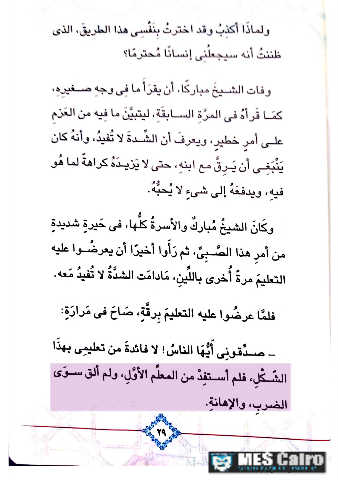 ولماذَا أكذِبُ وقد اخترتُ بنَفْسِى هذَا الطريقَ، الذى
ظننتُ أنه سيجعلُنِى إنسانًا مُحترمًا؟
وفات الشيخَ مباركًا، أن يقرَأ ما فى وجهِ صغيرِه،
كمَا قرأهُ فى المرَّةِ السابقَةِ، ليتبيَّنَ ما فيه من العَزمِ
على أمرٍ خطيرٍ، ويعرفَ أن الشِّدةَ لا تُفيدُ، وأنهُ كان
يَنْبَغِى أن يَرِقَّ مع ابنهِ، حتى لا يَزيدَهُ كراهةً لما هُو
فيهِ، ويدفعَهُ إلى شىءٍ لا يُحبُّهُ.
وكَانَ الشيخُ مُباركٌ والأسرةُ كلُّها، فى حَيرةٍ شديدةٍ
من أمرِ هذَا الصَّبِىِّ، ثم رَأَوا أخيرًا أن يعرضُوا عليه
التعليمَ مرةً أُخرى باللِّينِ، مَادامَت الشدَّةُ لا تُفيدُ مَعه.
فلمَّا عرضُوا عليه التعليمَ برِقَّةٍ، صَاحَ فى مَرارَةٍ:
ـ صـدِّقونِى أيُّهَا الناسُ! لا فائدةَ من تعليمِى بهذَا
الشَّكْلِ، فلم أستَفِدْ من المعلِّمِ الأوَّلِ، ولم ألقِ سوَى
الضربِ، والإهانةِ.
٢٩
MES Cairo